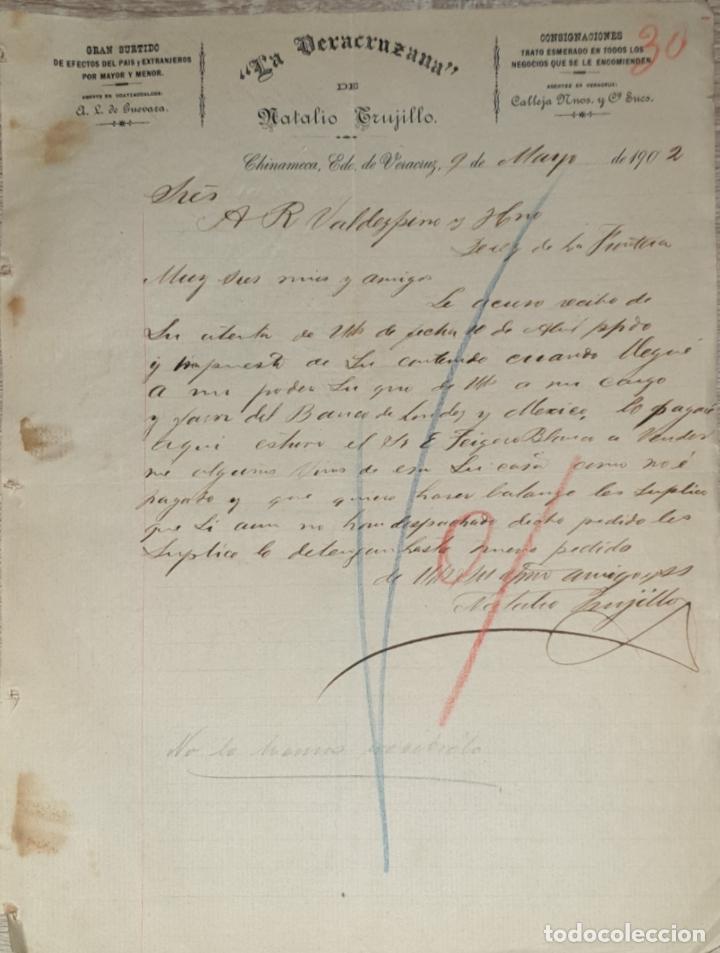 GRAN SURTIDO
DE EFECTOS DEL PAIS y EXTRANJEROS
POR MAYOR Y MENOR.
AGENTE EN COATZACOALCOS:
A. L. de Guevara.
"La Veracruzana"
DE
Natalio Trujillo.
CONSIGNACIONES
TRATO ESMERADO EN TODOS LOS
NEGOCIOS QUE SE LE ENCOMIENDEN
AGENTES EN VERACRUZ:
Calleja Hnos. y Cª Sucs.
30
Chinameca, Edo. de Veracruz, 9 de Mayo de 1902
Sres
A R Valdespino y Hno
Jerez de La Frontera
Muy Sres mios y amigos
Le acuso recibo de
Su atenta de Uds de fecha 10 de Abril ppdo
y impuesto de Su contenido cuando llegué
a mi poder Su giro de Uds a mi cargo
y favor del Banco de Londres y Mexico, lo pagaré
aqui estuvo el Sr E Feigoro Blanca a Vender
me algunos Vinos de esa Su casa como no é
pagado y que quiero hacer balance les Suplico
que Si aun no han despachado dicho pedido les
Suplico lo detengan hasta nuevo pedido
de Uds Su afmo amigo y SS
Natalio Trujillo
No lo hemos recibido
todocoleccion.net